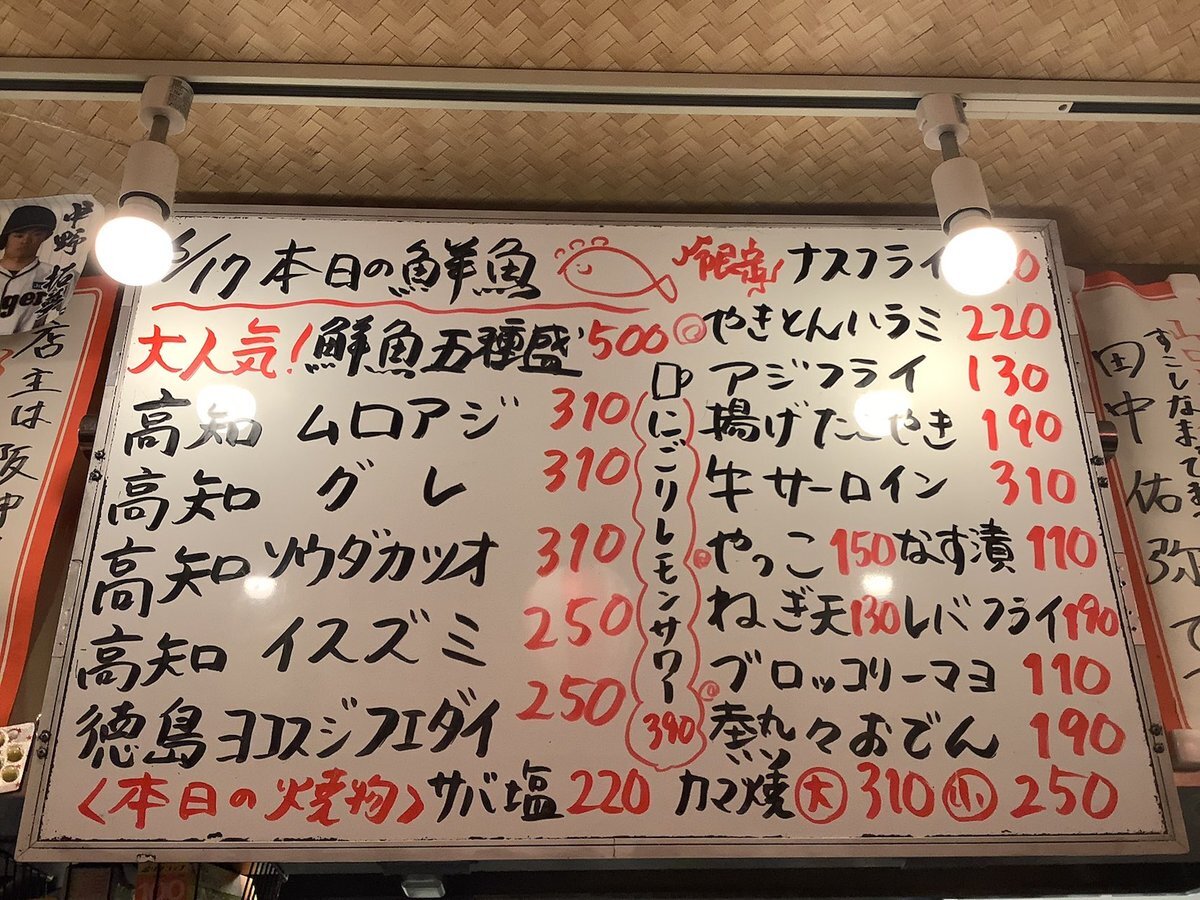 /17 本日の鮮魚
大人気! 鮮魚五種盛 500
高知 ムロアジ 310
高知 グレ 310
高知 ソウダカツオ 310
高知 イスズミ 250
徳島 ヨコスジフエダイ 250
<本日の焼物> サバ塩 220 カマ焼 大 310 小 250
にごりレモンサワー 390
ナスフライ
やきとんハラミ 220
アジフライ 130
揚げたこやき 190
牛サーロイン 310
やっこ 150 なす漬 110
ねぎ天 130 レバフライ 190
ブロッコリーマヨ 110
熱々おでん 190
中野 拓夢
店主は阪神
すこしなまって
田中 佑弥 で